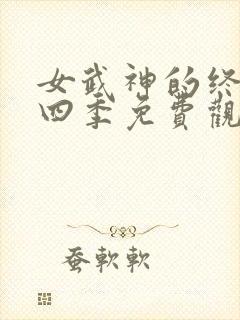 女武神的终
四季免費觀
蚕軟軟